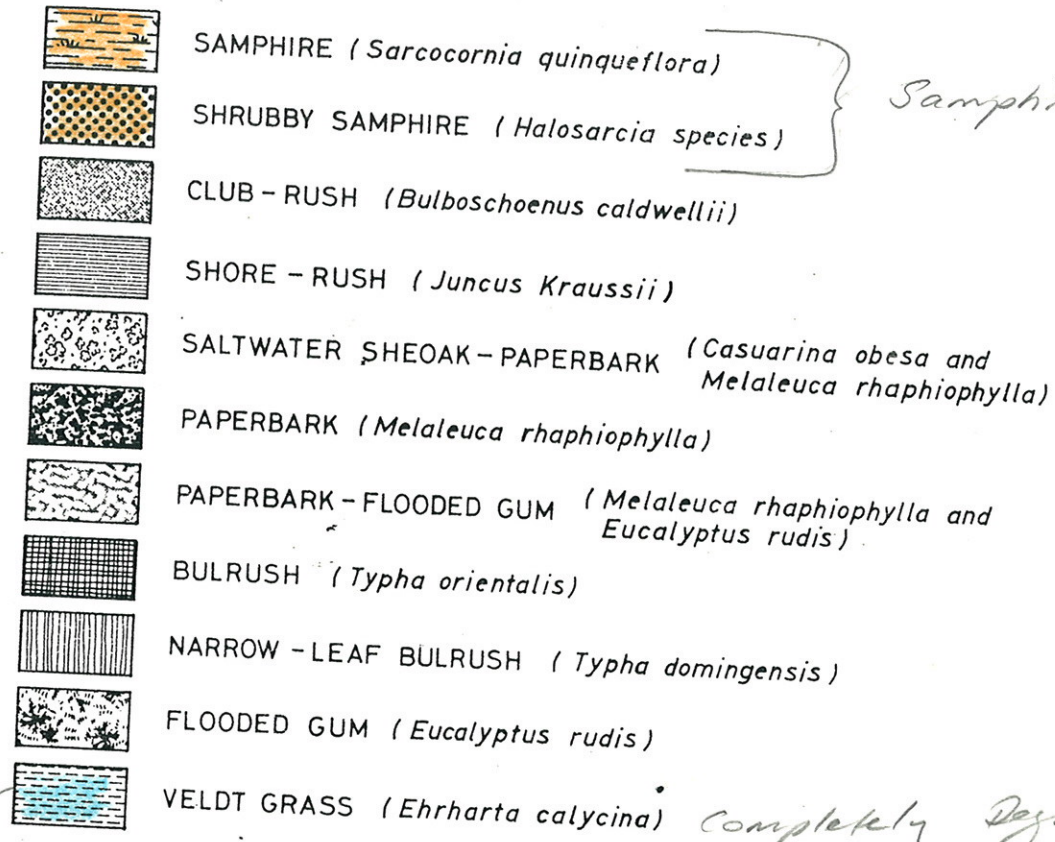 SAMPHIRE (Sarcocornia quinqueflora)
SHRUBBY SAMPHIRE (Halosarcia species)
CLUB-RUSH (Bulboschoenus caldwellii)
SHORE-RUSH (Juncus Kraussii)
SALTWATER SHEOAK-PAPERBARK (Casuarina obesa and
Melaleuca rhaphiophylla)
PAPERBARK (Melaleuca rhaphiophylla)
PAPERBARK-FLOODED GUM (Melaleuca rhaphiophylla and
Eucalyptus rudis)
BULRUSH (Typha orientalis)
NARROW-LEAF BULRUSH (Typha domingensis)
FLOODED GUM (Eucalyptus rudis)
VELDT GRASS (Ehrharta calycina) Completely